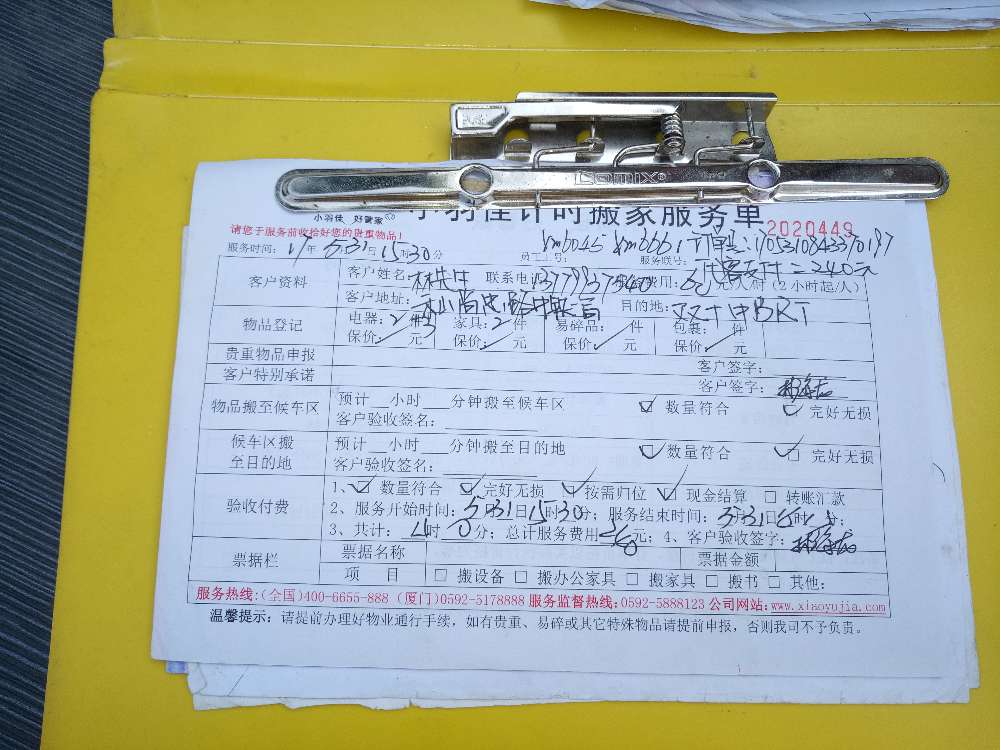 Comix
小羽佳 好管家
小羽佳计时搬家服务单
请您于服务前收拾好您的贵重物品!
2020449
服务时间: 17年5月31日15时30分 员工工号: 服务联号:
客户支付=240元
客户资料 客户姓名: 林先生 联系电话 费用: 60元/人/时(2小时起/人)
客户地址: 目的地: 双十中BRT
物品登记 电器: 2件 家具: 2件 易碎品: 件 包裹: 件
保价: 元 保价: 元 保价: 元 保价: 元
贵重物品申报 客户签字:
客户特别承诺 客户签字:
物品搬至候车区 预计 小时 分钟搬至候车区 数量符合 完好无损
客户验收签名:
候车区搬至目的地 预计 小时 分钟搬至目的地 数量符合 完好无损
客户验收签名:
验收付费 1、数量符合 完好无损 按需归位 现金结算 转账汇款
2、服务开始时间: 5月31日15时30分; 服务结束时间: 5月31日 时 分;
3、共计: 时0分; 总计服务费用 元; 4、客户验收签字:
票据栏 票据名称 票据金额
项 目 搬设备 搬办公家具 搬家具 搬书 其他:
服务热线:(全国)400-6655-888 (厦门)0592-5178888 服务监督热线:0592-5888123 公司网站:www.xiaoyujia.com
温馨提示: 请提前办理好物业通行手续, 如有贵重、易碎或其它特殊物品请提前申报, 否则我司不予负责。